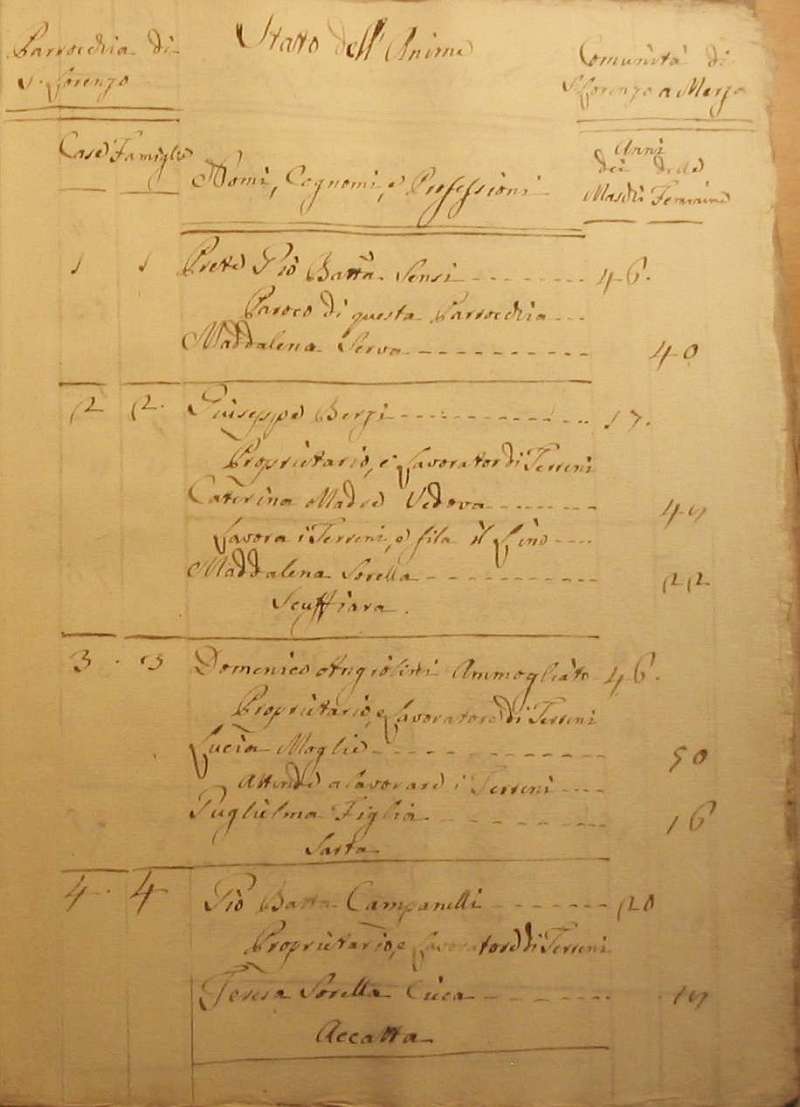 Stato dell'Anime
Parrocchia di
S. Lorenzo
Comunità di
S. Lorenzo a Merse
Case Famiglie
Nomi, Cognomi, e Professioni
Anni
dei delle
Maschi Femmine
1 1 Prete Gio Batta Sensi 46.
Paroco di questa Parrocchia
Maddalena Serva 40
2 2. Giuseppe Berzi 17.
Proprietario, e Lavorator di Terreni
Caterina Madre Vedova
Lavora i Terreni, e fila il Lino
Maddalena Sorella 22
Scuffiara.
3. 3 Domenico Angiolini Ammogliato 46.
Proprietario, e Lavoratore di Terreni
Lucia Moglie 50
Attende a lavorare i Terreni
Guglielma Figlia 16
Sarta
4. 4 Gio Batta Campanelli 20
Proprietario, e Lavoratore di Terreni
Teresa Sorella Cieca
Accatta